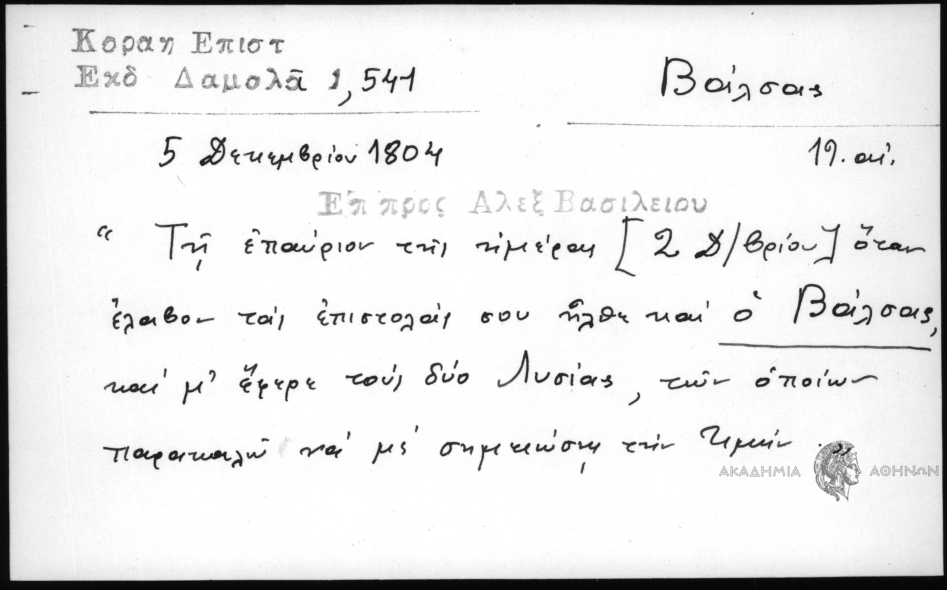 Κοραη Επιστ
Εκδ Δαμολᾶ 1,541
Βάλσας
5 Δεκεμβρίου 1804
19. αἰ.
Επ προς Αλεξ Βασιλειου
“ Τῇ ἐπαύριον τῆς ἡμέρας [2 Δ/βρίου] ὅταν
ἔλαβον τάς ἐπιστολάς σου ἦλθε καί ὁ Βάλσας,
καί μ' ἔφερε τούς δύο Λυσίας, τῶν ὁποίων
παρακαλῶ νά μέ σημειώσῃς τήν τιμήν. ”
ΑΚΑΔΗΜΙΑ ΑΘΗΝΩΝ